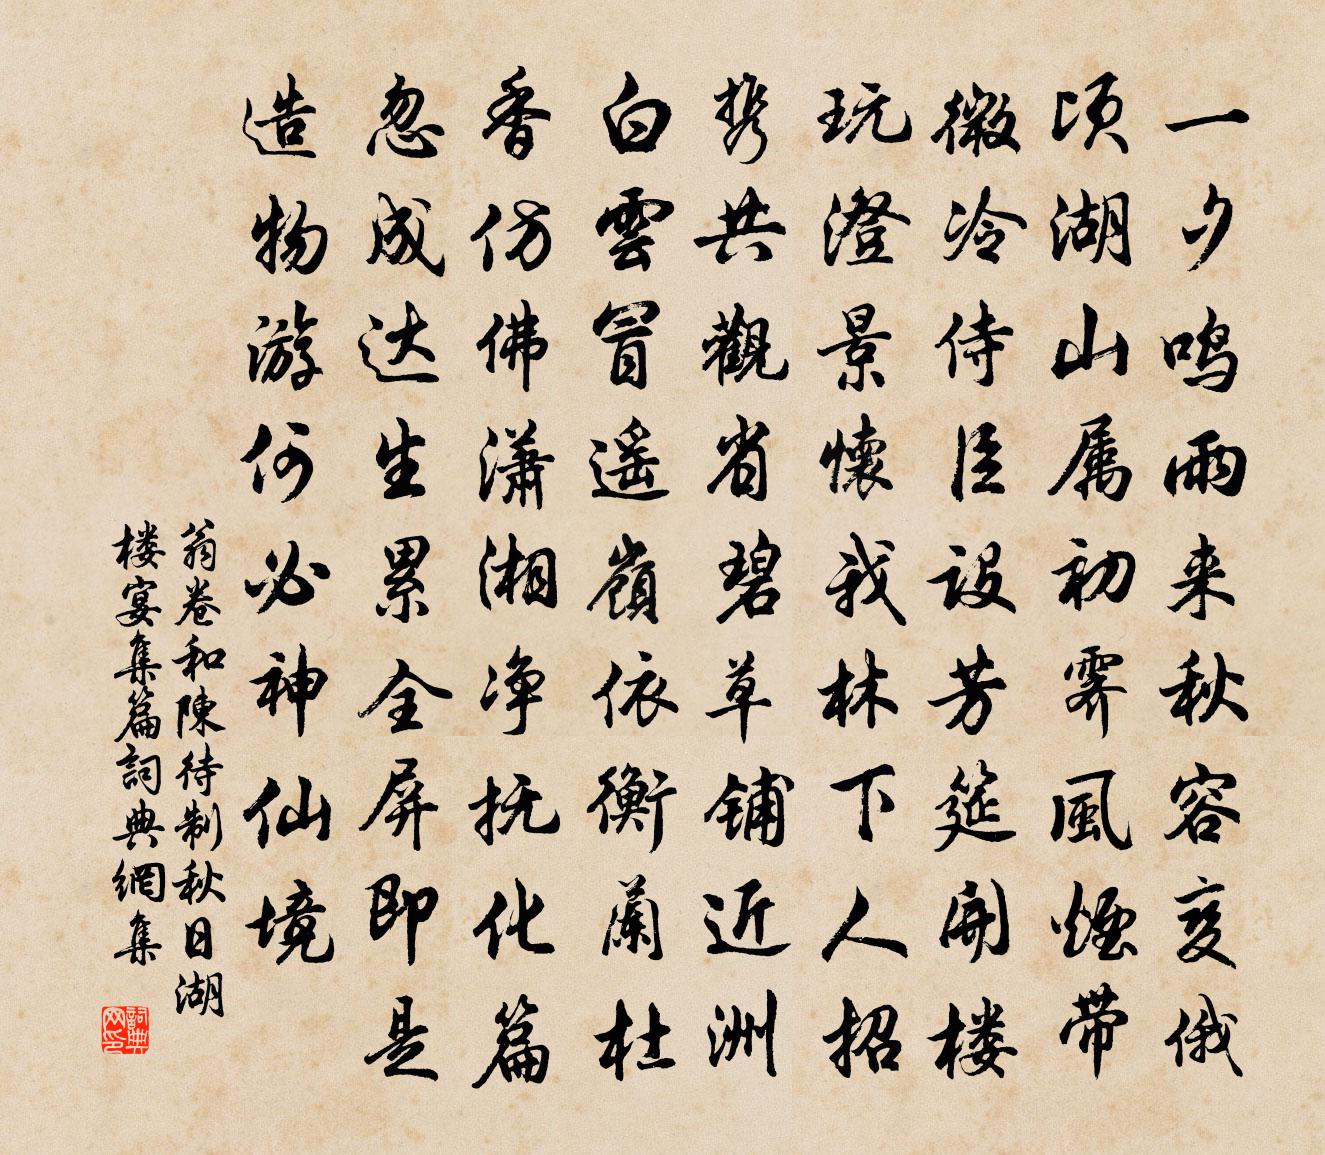 一夕鸣雨来秋容变俄
顷湖山属初霁風煙带
微冷侍臣设芳筵開楼
玩澄景懷我林下人招
携共觀省碧草铺近洲
白雲冒遥嶺依衡蘭杜
香仿佛瀟湘净抚化篇
忽成达生累全屏即是
造物游何必神仙境
翁卷和陳待制秋日湖
楼宴集篇詞典網集
詞典网印